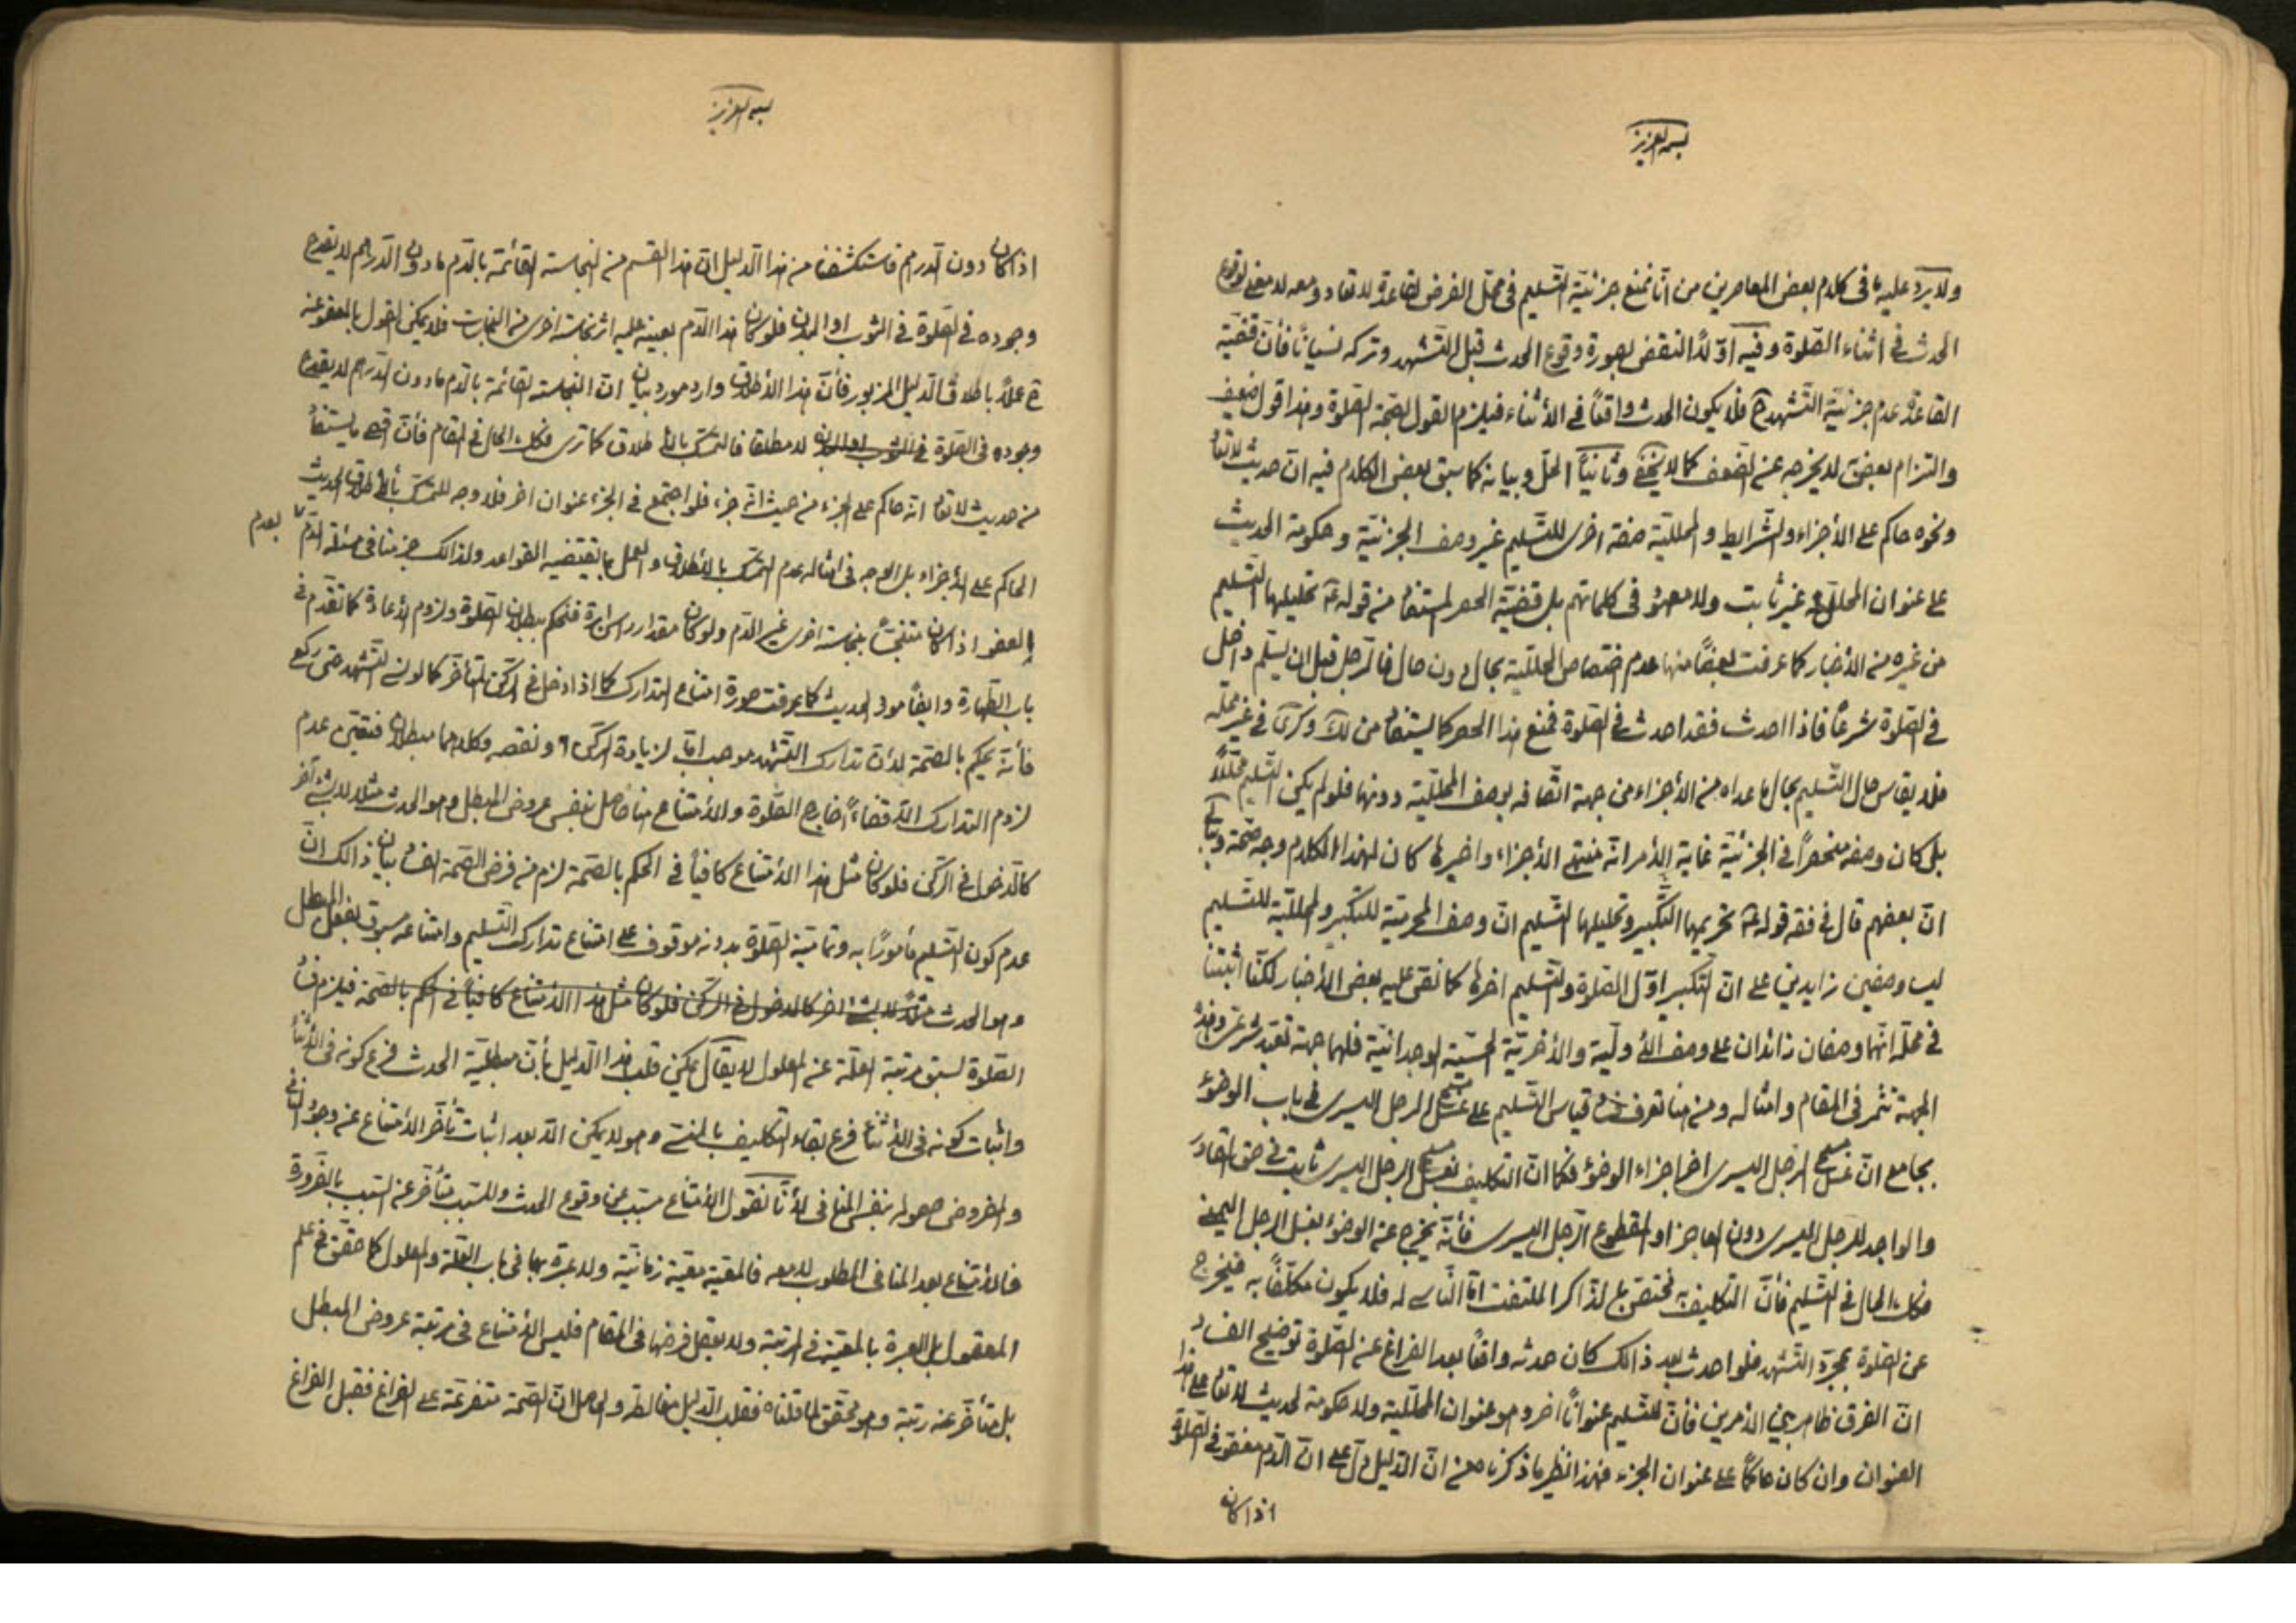 بسمه العزيز
ولا يرد عليه ما في كلام بعض المعاصرين من انّا نمنع جزئيّة التّسليم في محلّ الفرض لقاعدة لا تعاد ومعه لا معنى لوقوع
الحدث في اثناء الصّلوة وفيه اوّلاً النقض بصورة وقوع الحدث قبل التّشهد وتركه نسياناً فأنّ قضيّة
القاعدة عدم جزئيّة التّشهد ح فلا يكون الحدث واقعاً في الأثناء فيلزم القول بصحّة الصّلوة وهذا قول ضعيف
والتزام بعض به لا يخرجه عن الضّعف كما لا يخفى وثانياً الحلّ وبيانه كما سبق بعض الكلام فيه انّ حديث لا تعاد
ونحوه حاكم على الأجزاء والشّرايط والمحلليّة صفة اخرى للتّسليم غير وصف الجزئيّة وحكومة الحديث
على عنوان المحلّليّة غير ثابت ولا معهود في كلماتهم بل قضيّة الحصر المستفاد من قوله ع تحليلها التّسليم
من غيره من الأخبار كما عرفت بعضاً منها عدم اختصاص المحلّليّة بحال دون حال فالرّجل قبل ان يسلّم داخل
في الصّلوة شرعاً فاذا احدث فقد احدث في الصّلوة فمنع هذا الحصر كما يستفاد من ذكرى في غير محلّه
فلا يقاس حال التّسليم بحال ما عداه من الأجزاء من جهة اتّصافه بوصف المحلّليّة دونها فلو لم يكن التّسليم محلّلاً
بل كان وصفه منحصراً في الجزئيّة غاية الأمر انّه منتهى الأجزاء واخيرها كان لهذا الكلام وجه صحّة
انّ بعضهم قال في فقه قوله ع تحريمها التّكبير وتحليلها التّسليم انّ وصف المحرميّة للتكبير والمحلليّة للتّسليم
ليسا وصفين زايدين على انّ التكبير اوّل الصّلوة والتّسليم اخرها كما نصّ عليه بعض الأخبار لكنّا اثبتنا
في محلّه انّهما وصفان زائدان على وصف الأوليّة والأخريّة الحسّيّة الوجدانيّة فلهما جهة تعبّد شرعيّ وهذه
الجهة تثمر في المقام وامثاله ومن هنا تعرف فساد قياس التّسليم على مسح الرجل اليسرى في باب الوضوء
بجامع انّ مسح الرّجل اليسرى اخر اجزاء الوضوء فكما انّ التكليف بمسح الرجل اليسرى ثابت في حق القادر
والواجد للرّجل اليسرى دون العاجز او المقطوع الرّجل اليسرى فأنّه يخرج عن الوضوء بغسل الرجل اليمنى
فكك الحال في التّسليم فأنّ التكليف به مختصّ بالذاكر الملتفت امّا النّاسى له فلا يكون مكلّفاً به فيخرج
عن الصّلوة بمجرّد التّشهد فلو احدث بعد ذالك كان حدثه واقعاً بعد الفراغ عن الصّلوة توضيح الفساد
انّ الفرق ظاهر بين الأمرين فأنّ للتّسليم عنواناً اخر وهو عنوان المحلّليّة ولا حكومة لحديث لا تعاد على هذا
العنوان وان كان حاكماً على عنوان الجزء فهذا نظير ما ذكرنا من انّ الدّليل دلّ على انّ الدّم معفو في الصّلوة
اذا كان
بسمه العزيز
اذا كان دون الدّرهم فاستكشفنا من هذا الدّليل انّ هذا القسم من النجاسة القائمة بالدّم ما دون الدّرهم لا يقدح
وجوده في الصّلوة في الثوب او البدن فلو كان هذا الدّم بعينه عليه اثر نجاسة اخرى من النجاسات فلا يمكن القول بالعفو عنه
ح عملاً باطلاق الدّليل المزبور فأنّ هذا الأطلاق وارد مورد بيان انّ النجاسة القائمة بالدّم ما دون الدّرهم لا يقدح
وجوده في الصّلوة في الثوب او البدن لا مطلقا فالتمسّك بالأطلاق كما ترى فكك الحال في المقام فأنّ اقصى ما يستفاد
من حديث لا تعاد انّه حاكم على الجزء من حيث انّه جزء فلو اجتمع في الجزء عنوان اخر فلا وجه للتمسّك بأطلاق الحديث
الحاكم على الأجزاء بل الوجه في امثاله عدم التمسّك بالأطلاق والعمل بما يقتضيه القواعد ولذالك جزمنا في مسئلة الدّم بعدم
العفو اذا كان متنجّساً بنجاسة اخرى غير الدّم ولو كان مقدار رأس ابرة فنحكم ببطلان الصّلوة ولزوم الأعادة كما تقدّم في
باب الطّهارة وايضاً مورد الحديث كما عرفت صورة امتناع التدارك كما اذا دخل في الرّكن المتأخّر كما لو نسى التّشهد حتى ركع
فأنّه يحكم بالصّحة لأنّ تدارك التّشهد موجب امّا لزيادة الرّكن او نقصه وكلاهما مبطلان فتعيّن عدم
لزوم التدارك الّا قضاءً خارج الصّلوة والأمتناع هنا حاصل بنفس عروض المبطل وهو الحدث مثلا لا بشئ آخر
كالدّخول في الرّكن فلو كان مثل هذا الأمتناع كافياً في الحكم بالصّحة لزم من فرض الصّحة الفساد بيان ذالك انّ
عدم كون التّسليم مأموراً به وتماميّة الصّلوة بدونه موقوف على امتناع تدارك التّسليم وامتناعه مسبوق بفعل المبطل
وهو الحدث مثلاً لا بشئ اخر كالدخول في الرّكن فلو كان مثل هذا الأمتناع كافياً في الحكم بالصّحة فيلزم فساد
الصّلوة لسبق مرتبة العلّة عن المعلول لا يقال يمكن قلب هذا الدّليل بأنّ مبطليّة الحدث فرع كونه في الأثناء
واثبات كونه في الأثناء فرع بقاء التكليف بالمنسى وهو لا يمكن الّا بعد اثبات تأخّر الأمتناع عن وجود المنافي
والمفروض حصوله بنفس المنافي لأنّا نقول الأمتناع مسبّب عن وقوع الحدث والمسبّب متأخّر عن السّبب بالضّرورة
فالأمتناع بعد المنافي المطلوب لا معه فالمعيّة معيّة زمانيّة ولا عبرة بها في باب العلّة والمعلول كما حقّق في علم
المعقول بل العبرة بالمعيّة في المرتبة ولا يعقل فرضها في المقام فليس الأمتناع في مرتبة عروض المبطل
بل متأخّر عنه رتبة وهو محقّق لما قلناه فقلب الدّليل مغالطة والحاصل انّ الصّحة متفرّعة على الفراغ فقبل الفراغ